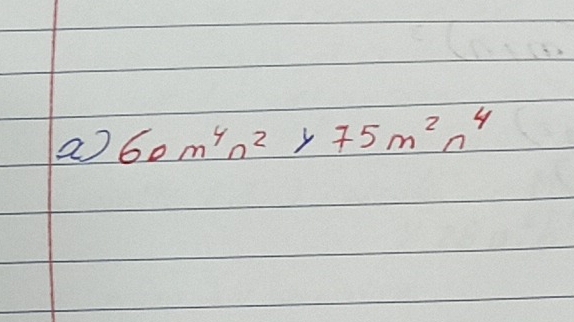 a) 60m⁴n² y 75m²n⁴